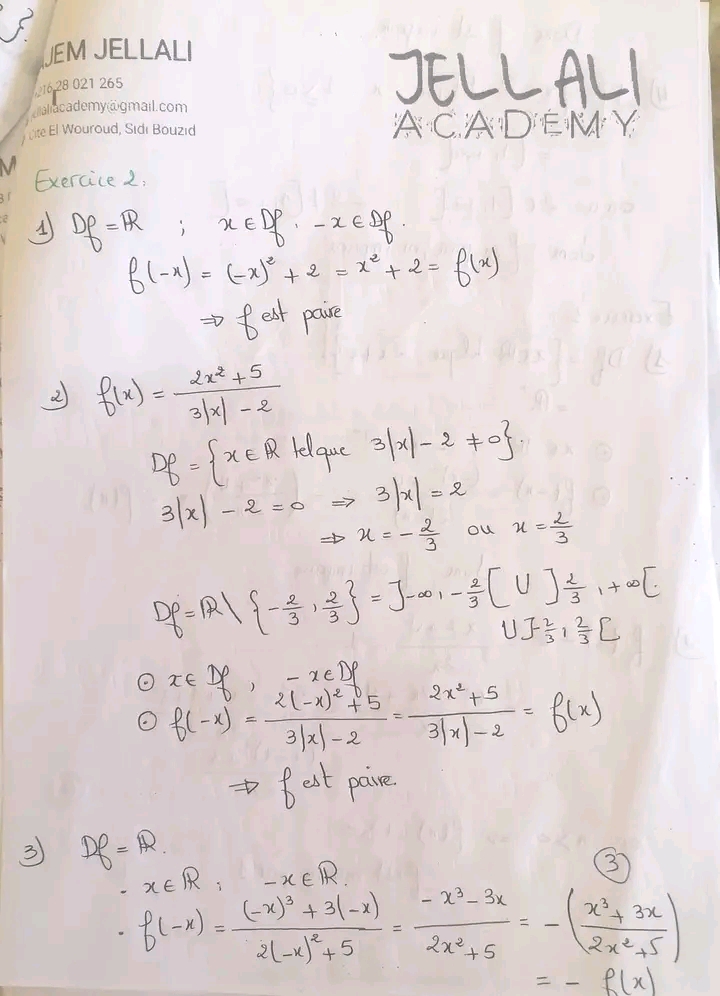 JEM JELLALI
216 28 021 265
jellaliacademy@gmail.com
Cite El Wouroud, Sidi Bouzid
JELLALI
ACADEMY
Exercice 2:
1) Df = ℝ ; x ∈ Df, -x ∈ Df.
f(-x) = (-x)² + 2 = x² + 2 = f(x)
⇒ f est paire
2) f(x) = (2x² + 5) / (3|x| - 2)
Df = {x ∈ ℝ tel que 3|x| - 2 ≠ 0}.
3|x| - 2 = 0 ⇒ 3|x| = 2
⇒ x = -2/3 ou x = 2/3
Df = ℝ \ {-2/3, 2/3} = ]-∞, -2/3[ U ]2/3, +∞[.
U ]-2/3, 2/3[
⊙ x ∈ Df, -x ∈ Df
⊙ f(-x) = (2(-x)² + 5) / (3|x| - 2) = (2x² + 5) / (3|x| - 2) = f(x)
⇒ f est paire.
3) Df = ℝ.
- x ∈ ℝ ; -x ∈ ℝ.
③
- f(-x) = ((-x)³ + 3(-x)) / (2(-x)² + 5) = (-x³ - 3x) / (2x² + 5) = -((x³ + 3x) / (2x² + 5))
= - f(x)